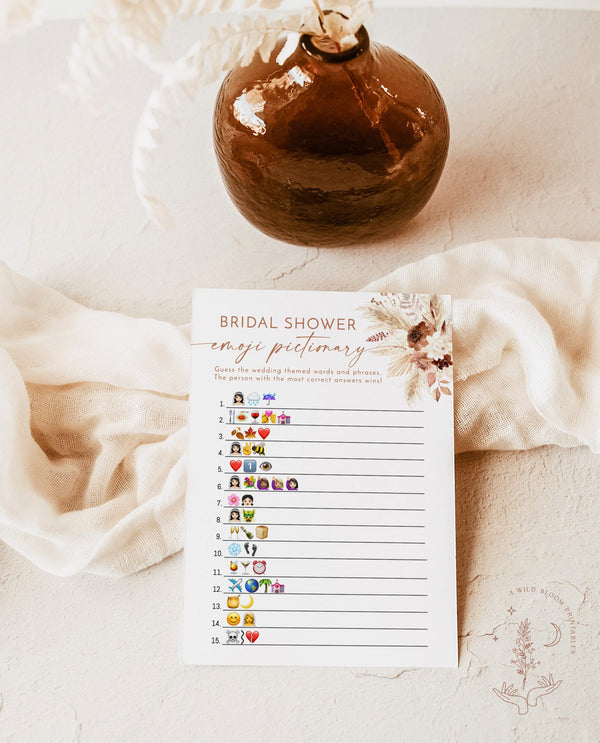 BRIDAL SHOWER
emoji pictionary
Guess the wedding themed words and phrases.
The person with the most correct answers wins!
1. 👰🏻🌧️☔
2. 🍴🍝🍷💏💒
3. 🍂🍁❤️
4. 👰🏻✌️🐝
5. ❤️1️⃣👁️
6. 👰🏻💐🙋🏽‍♀️🙋🏼‍♀️🙋🏻‍♀️
7. 🌸👧🏻
8. 👰🏻👹
9. 🥂🍾📦
10. ❄️👣
11. 🍹🍸⏰
12. ✈️🌎🌴💒
13. 🍯🌙
14. 😊👰
15. ☠️💔
A WILD BLOOM PRINTABLES